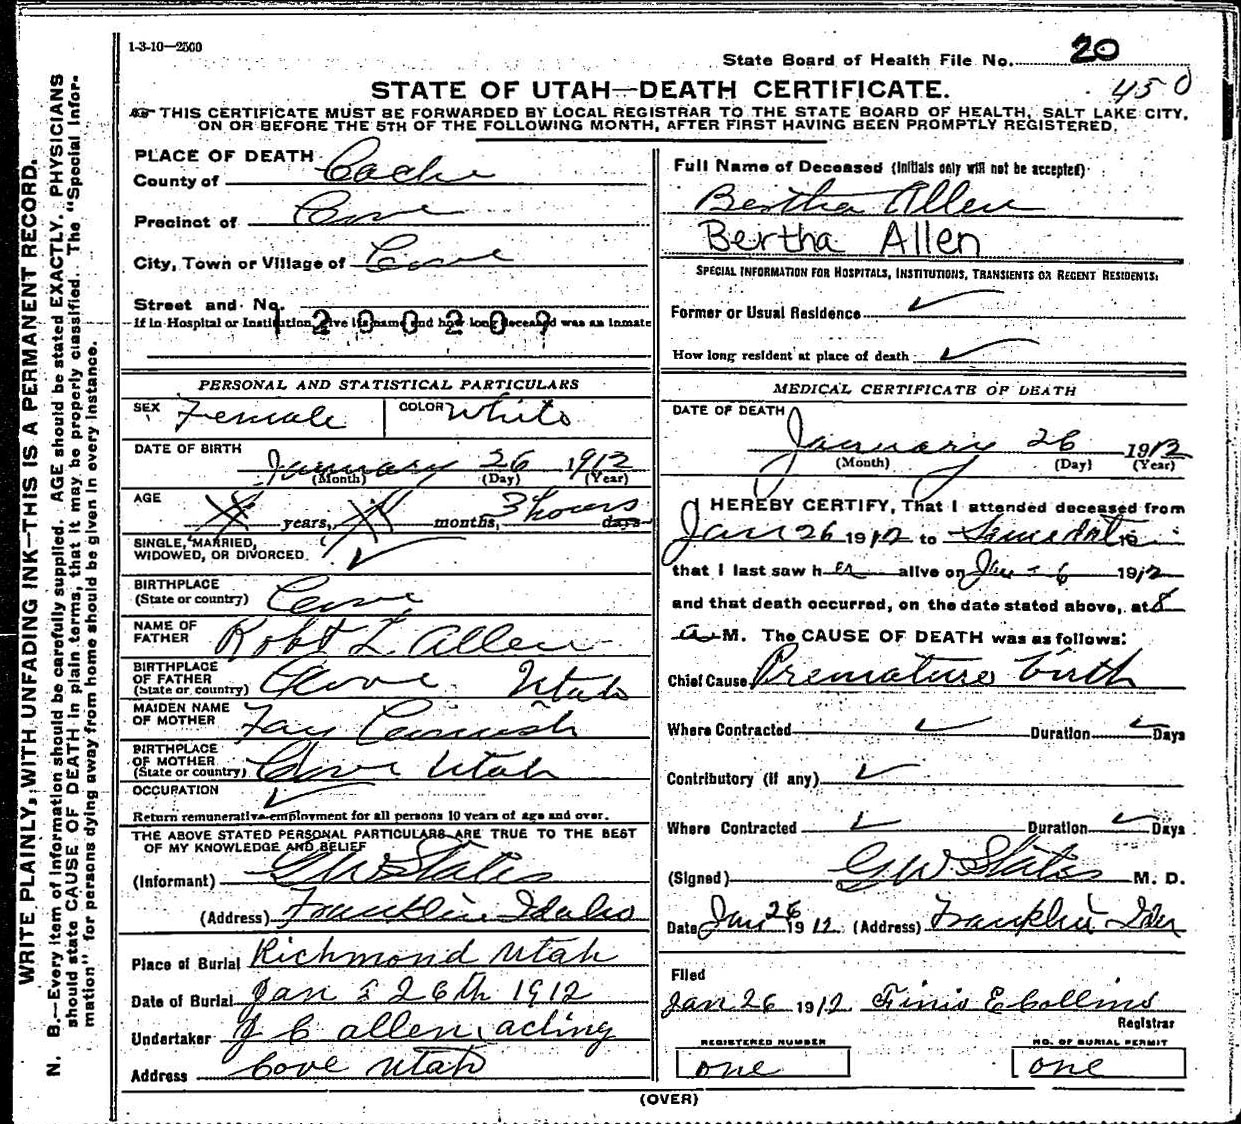 1-3-10—2500
State Board of Health File No. 20
450
STATE OF UTAH—DEATH CERTIFICATE.
THIS CERTIFICATE MUST BE FORWARDED BY LOCAL REGISTRAR TO THE STATE BOARD OF HEALTH, SALT LAKE CITY,
ON OR BEFORE THE 5TH OF THE FOLLOWING MONTH, AFTER FIRST HAVING BEEN PROMPTLY REGISTERED.
WRITE PLAINLY, WITH UNFADING INK—THIS IS A PERMANENT RECORD.
N. B.—Every item of information should be carefully supplied. AGE should be stated EXACTLY. PHYSICIANS
should state CAUSE OF DEATH in plain terms, that it may be properly classified. The "Special Infor-
mation" for persons dying away from home should be given in every instance.
PLACE OF DEATH
County of Cache
Precinct of Cove
City, Town or Village of Cove
Street and No.
If in Hospital or Institution, give its name and how long deceased was an inmate
1200209
PERSONAL AND STATISTICAL PARTICULARS
SEX Female COLOR White
DATE OF BIRTH
January 26 1912
(Month) (Day) (Year)
AGE
years, months, 3 hours days
SINGLE, MARRIED,
WIDOWED, OR DIVORCED
BIRTHPLACE
(State or country) Cove
NAME OF
FATHER Robt L Allen
BIRTHPLACE
OF FATHER
(State or country) Cove Utah
MAIDEN NAME
OF MOTHER Fay
BIRTHPLACE
OF MOTHER
(State or country) Cove Utah
OCCUPATION
Return remunerative employment for all persons 10 years of age and over.
THE ABOVE STATED PERSONAL PARTICULARS ARE TRUE TO THE BEST
OF MY KNOWLEDGE AND BELIEF
(Informant) G W States
(Address) Franklin Idaho
Place of Burial Richmond Utah
Date of Burial Jan 26th 1912
Undertaker J C allen acting
Address Cove Utah
Full Name of Deceased (Initials only will not be accepted)
Bertha Allen
Bertha Allen
SPECIAL INFORMATION FOR HOSPITALS, INSTITUTIONS, TRANSIENTS OR RECENT RESIDENTS:
Former or Usual Residence
How long resident at place of death
MEDICAL CERTIFICATE OF DEATH
DATE OF DEATH
January 26 1912
(Month) (Day) (Year)
I HEREBY CERTIFY, That I attended deceased from
Jan 26 1912 to Same date 19
that I last saw her alive on Jan 26 1912
and that death occurred, on the date stated above, at 8
a M. The CAUSE OF DEATH was as follows:
Chief Cause Premature birth
Where Contracted Duration Days
Contributory (if any)
Where Contracted Duration Days
(Signed) G W States M. D.
Date Jan 26 1912 (Address) Franklin Ida
Filed
Jan 26 1912 Finis E Collins
Registrar
REGISTERED NUMBER
one
NO. OF BURIAL PERMIT
one
(OVER)